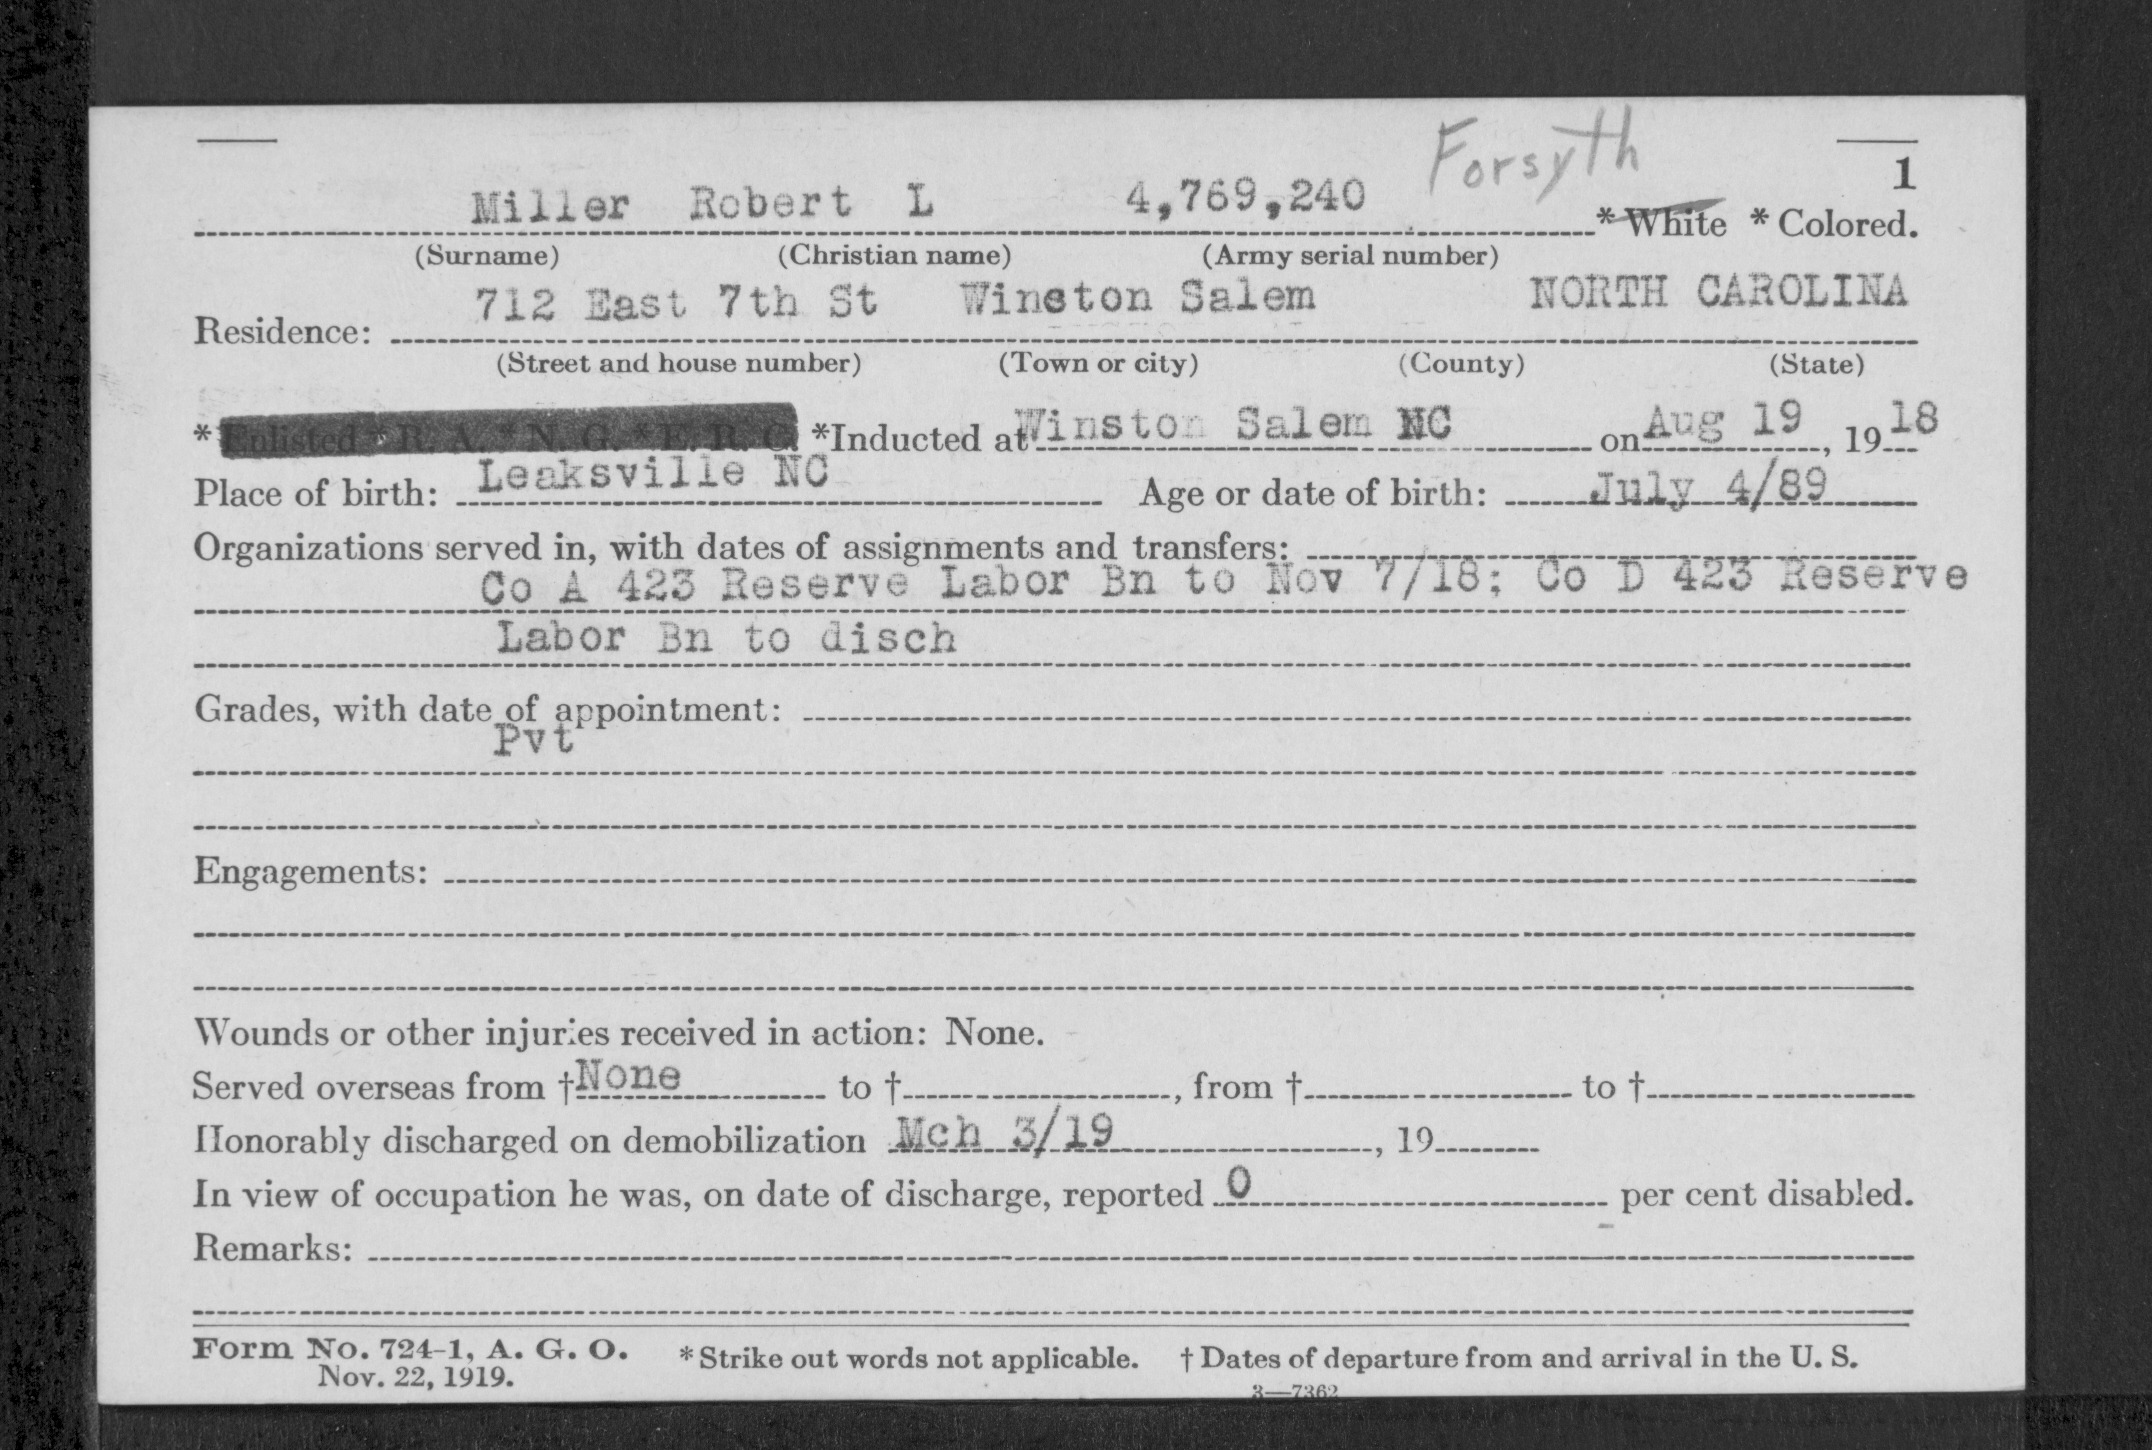 Forsyth
1
Miller Robert L 4,769,240 * White * Colored.
(Surname) (Christian name) (Army serial number)
712 East 7th St Winston Salem NORTH CAROLINA
Residence:
(Street and house number) (Town or city) (County) (State)
* Enlisted * R. A. * N. G. * E. R. C. *Inducted at Winston Salem NC on Aug 19, 1918
Place of birth: Leaksville NC Age or date of birth: July 4/89
Organizations served in, with dates of assignments and transfers:
Co A 423 Reserve Labor Bn to Nov 7/18; Co D 423 Reserve
Labor Bn to disch
Grades, with date of appointment:
Pvt
Engagements:
Wounds or other injuries received in action: None.
Served overseas from † None to †, from † to †
Honorably discharged on demobilization Mch 3/19, 19
In view of occupation he was, on date of discharge, reported 0 per cent disabled.
Remarks:
Form No. 724-1, A. G. O. * Strike out words not applicable. † Dates of departure from and arrival in the U. S.
Nov. 22, 1919.
3—7362